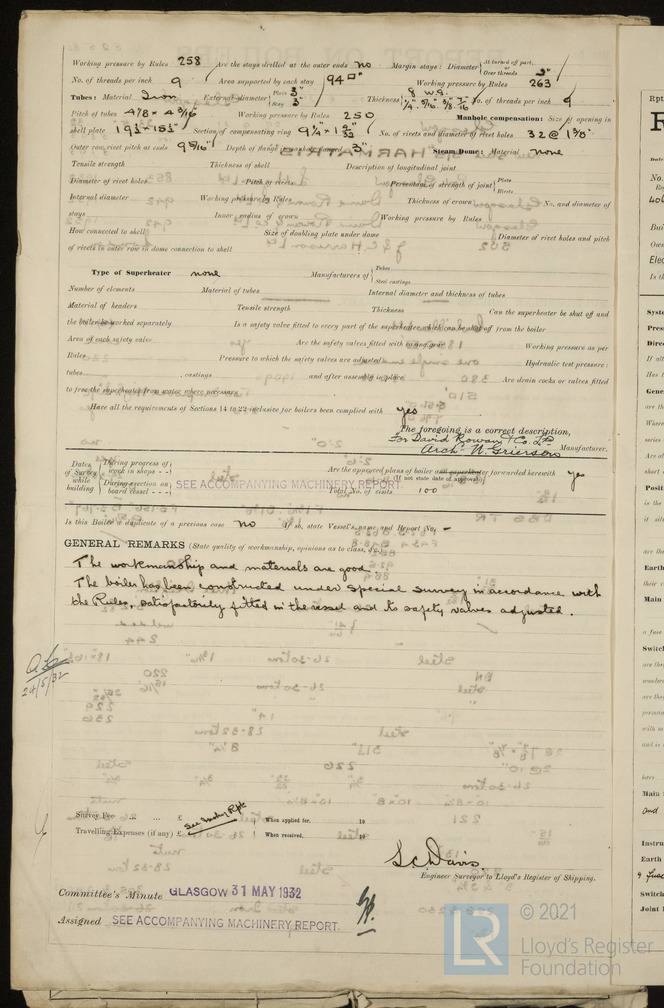 Working pressure by Rules 258 Are the stays drilled at the outer ends no Margin stays: Diameter { At turned off part, or Over threads 2"
No. of threads per inch 9 Area supported by each stay 94 □" Working pressure by Rules 263
Tubes: Material Iron External diameter { Plain 3" Stay 3" Thickness { 8 W.G. 1/4" 5/16" 3/8" No. of threads per inch 9
Pitch of tubes 4 1/8 × 4 3/16" Working pressure by Rules 250 Manhole compensation: Size of opening in
shell plate Section of compensating ring No. of rivets and diameter of rivet holes 32 @
Outer row rivet pitch at ends 9 5/16" Depth of flange if manhole flanged 3" Steam Dome: Material none
Tensile strength Thickness of shell Description of longitudinal joint
Diameter of rivet holes Pitch of rivets Percentage of strength of joint { Plate Rivets
Internal diameter Working pressure by Rules Thickness of crown No. and diameter of
stays Inner radius of crown Working pressure by Rules
How connected to shell Size of doubling plate under dome Diameter of rivet holes and pitch
of rivets in outer row in dome connection to shell
Type of Superheater none Manufacturers of { Tubes Steel castings
Number of elements Material of tubes Internal diameter and thickness of tubes
Material of headers Tensile strength Thickness Can the superheater be shut off and
the boiler be worked separately Is a safety valve fitted to every part of the superheater which can be shut off from the boiler
Area of each safety valve Are the safety valves fitted with easing gear Working pressure as per
Rules Pressure to which the safety valves are adjusted Hydraulic test pressure:
tubes , castings and after assembly in place Are drain cocks or valves fitted
to free the superheater from water where necessary
Have all the requirements of Sections 14 to 22 inclusive for boilers been complied with yes
The foregoing is a correct description,
For David Rowan & Co. Ltd
Archd W. Grierson Manufacturer.
Dates of Survey while building { During progress of work in shops - - During erection on board vessel - - - SEE ACCOMPANYING MACHINERY REPORT. Are the approved plans of boiler and superheater forwarded herewith yes
(If not state date of approval.)
Total No. of visits 100
Is this Boiler a duplicate of a previous case no If so, state Vessel's name and Report No. -
GENERAL REMARKS (State quality of workmanship, opinions as to class, &c.)
The workmanship and materials are good.
The boiler has been constructed under special survey in accordance with
the Rules, satisfactorily fitted in the vessel and its safety valves adjusted.
24/5/32
Survey Fee ... ... £ : : When applied for, 19
See Mchy Rpt
Travelling Expenses (if any) £ : : When received, 19
S.C. Davis
Engineer Surveyor to Lloyd's Register of Shipping.
Committee's Minute GLASGOW 31 MAY 1932
Assigned SEE ACCOMPANYING MACHINERY REPORT.
© 2021
LR Lloyd's Register
Foundation